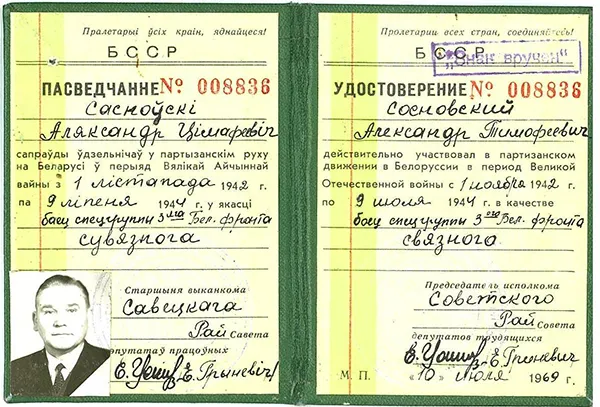 Пралетарыі ўсіх краін, яднайцеся!
БССР
ПАСВЕДЧАННЕ № 008836
Сасноўскі
Аляксандр Цімафеевіч
сапраўды ўдзельнічаў у партызанскім руху
на Беларусі ў перыяд Вялікай Айчыннай
вайны з 1 лістапада 1942 г.
па 9 ліпеня 1944 г. у якасці
баец спецгруппы 3го Бел. фронта
сувязнога
Старшыня выканкома
Савецкага
Рай Савета
дэпутатаў працоўных
Е. Грыневіч
Пролетарии всех стран, соединяйтесь!
БССР
„Знак вручен"
УДОСТОВЕРЕНИЕ № 008836
Сосновский
Александр Тимофеевич
действительно участвовал в партизанском
движении в Белоруссии в период Великой
Отечественной войны с 1 ноября 1942 г.
по 9 июля 1944 г. в качестве
боец спецгруппы 3го Бел. фронта
связного
Председатель исполкома
Советского
Рай Совета
депутатов трудящихся
Е. Гриневич
М. П. «10» июля 1969 г.